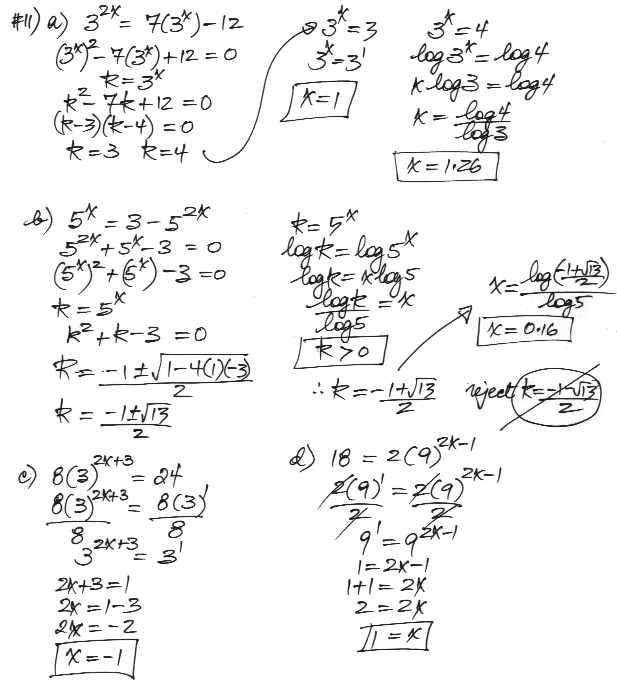 #11) a) 3^{2x} = 7(3^x) - 12
(3^x)^2 - 7(3^x) + 12 = 0
k = 3^x
k^2 - 7k + 12 = 0
(k-3)(k-4) = 0
k = 3 k = 4
3^x = 3
3^x = 3^1
x = 1
3^x = 4
log 3^x = log 4
x log 3 = log 4
x = log 4 / log 3
x = 1.26
b) 5^x = 3 - 5^{2x}
5^{2x} + 5^x - 3 = 0
(5^x)^2 + (5^x) - 3 = 0
k = 5^x
k^2 + k - 3 = 0
k = -1 ± √(1-4(1)(-3)) / 2
k = -1 ± √13 / 2
k = 5^x
log k = log 5^x
log k = x log 5
log k / log 5 = x
k > 0
∴ k = -1 + √13 / 2
reject k = -1 - √13 / 2
x = log(-1 + √13 / 2) / log 5
x = 0.16
c) 8(3)^{2x+3} = 24
8(3)^{2x+3} / 8 = 8(3)^1 / 8
3^{2x+3} = 3^1
2x + 3 = 1
2x = 1 - 3
2x = -2
x = -1
d) 18 = 2(9)^{2x-1}
2(9)^1 / 2 = 2(9)^{2x-1} / 2
9^1 = 9^{2x-1}
1 = 2x - 1
1 + 1 = 2x
2 = 2x
1 = x